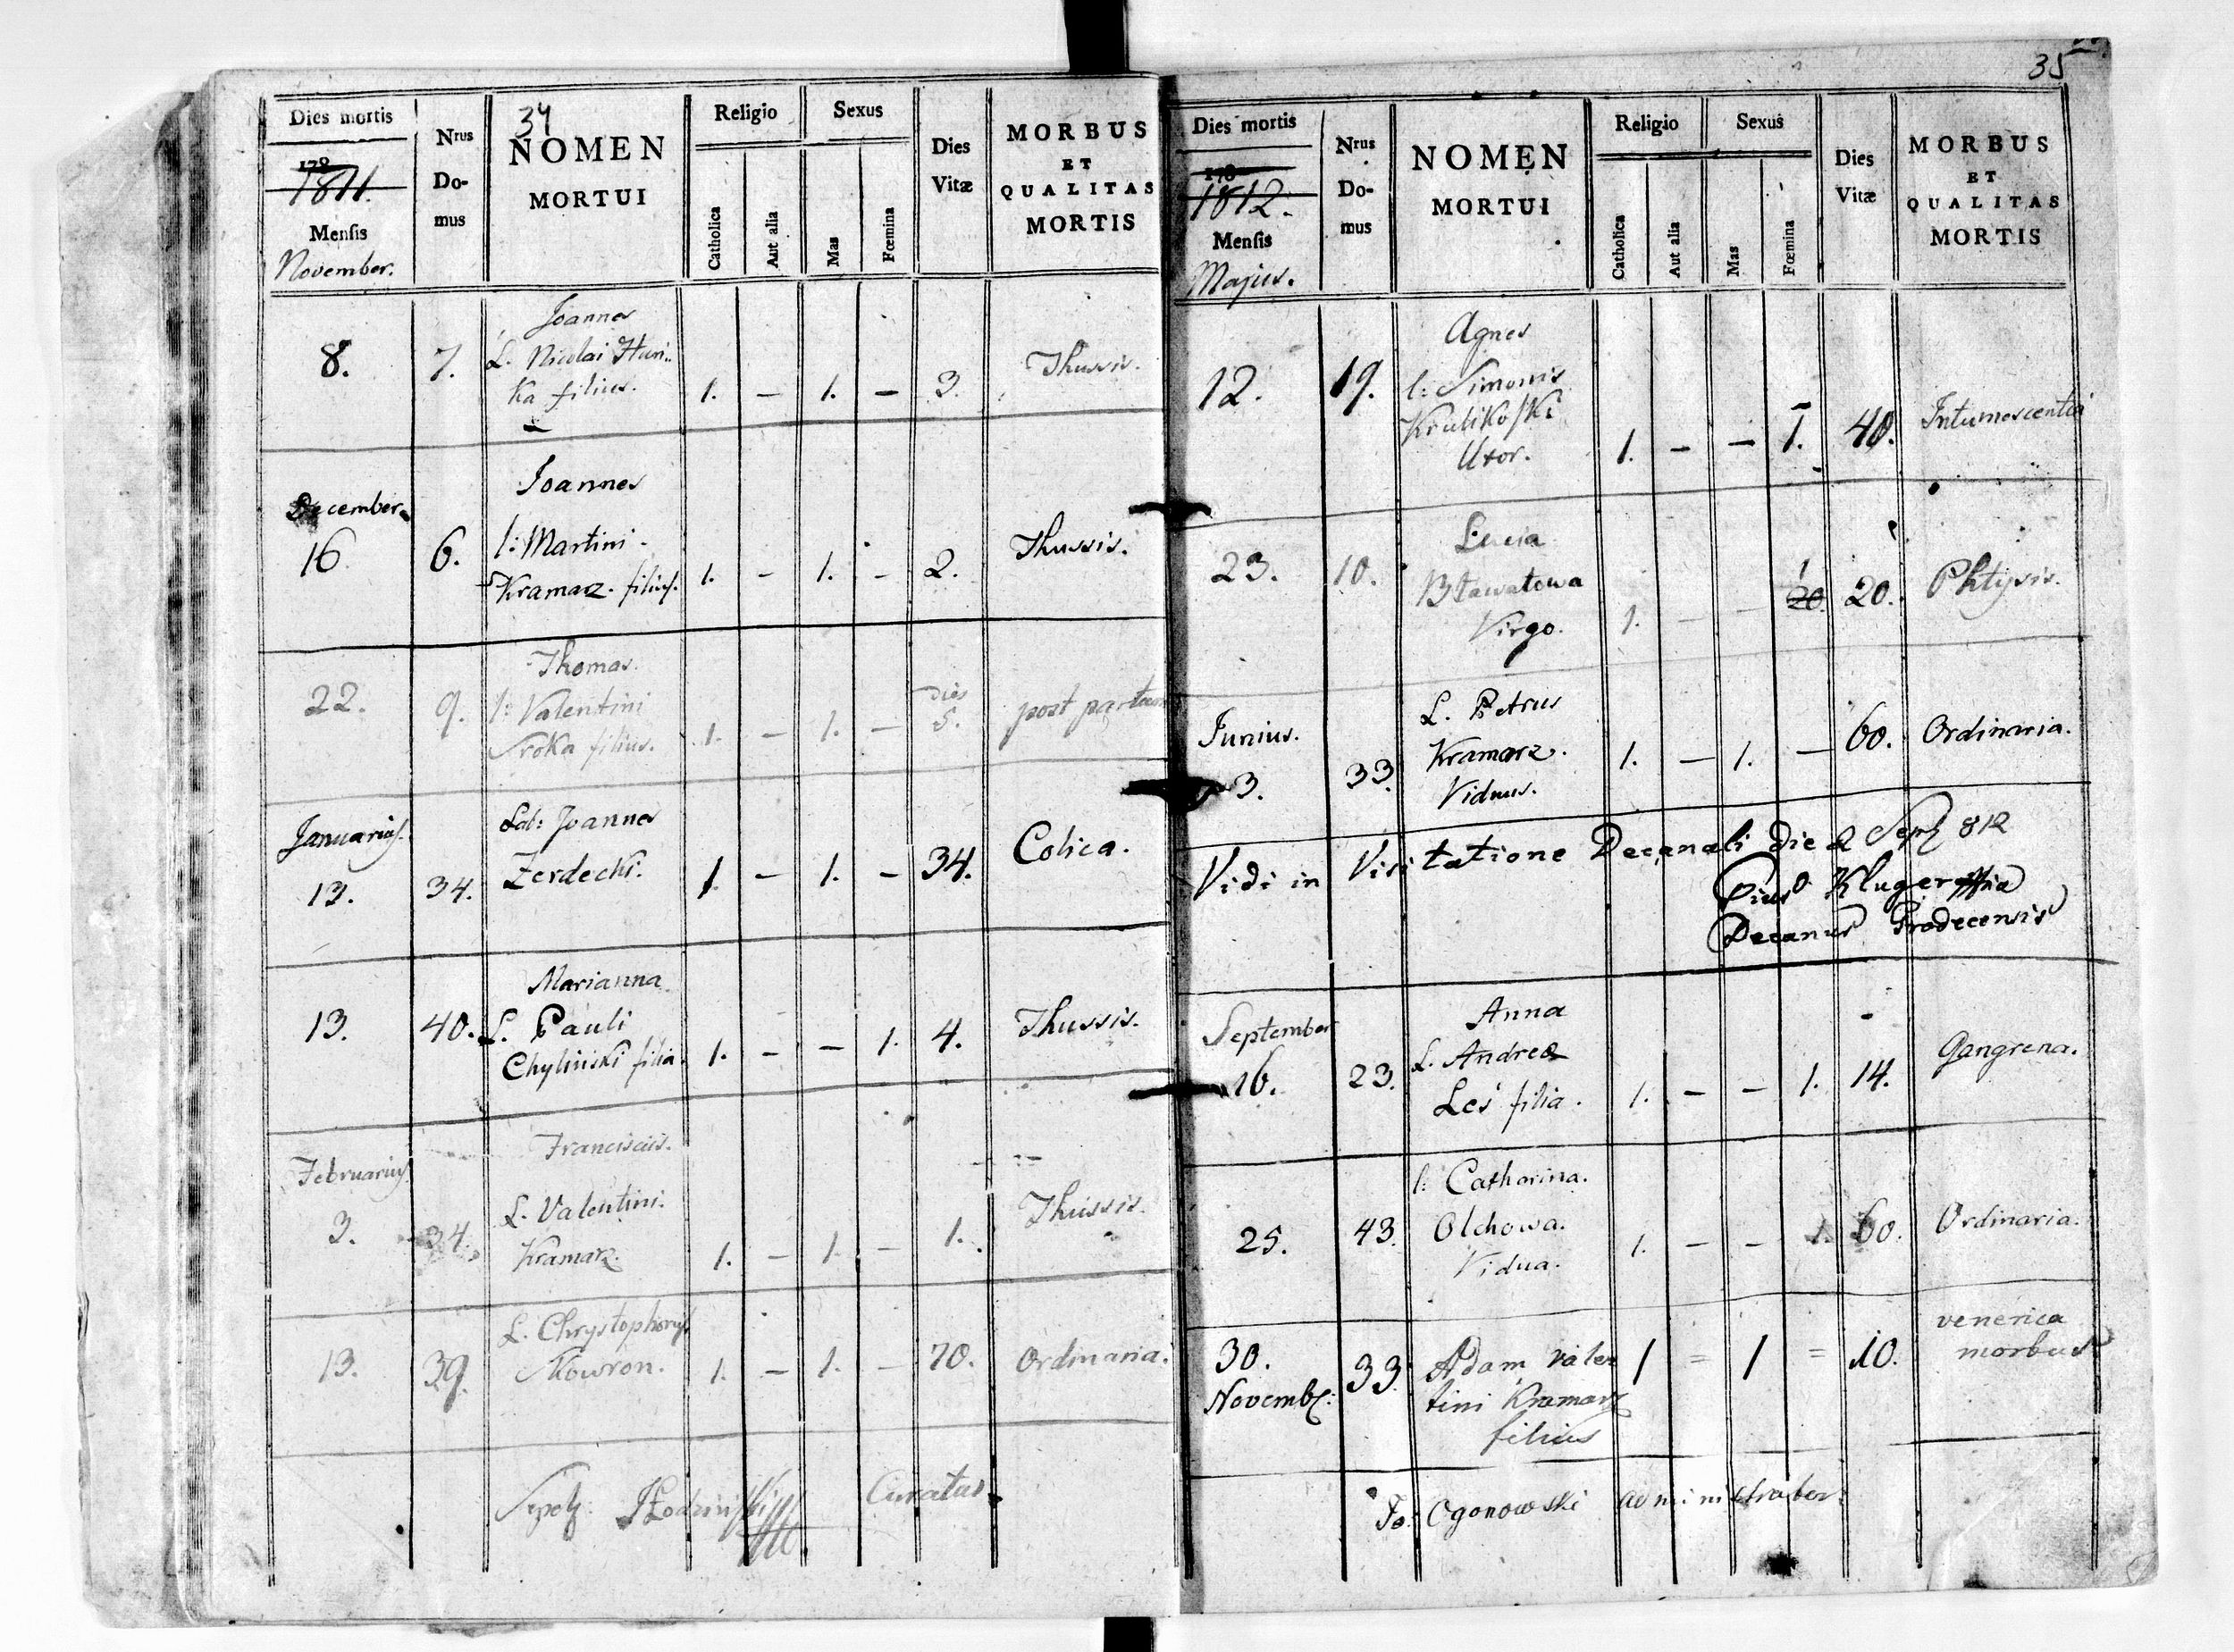 34
Dies mortis
178
1811.
Mensis
November.
Nrus
Do-
mus
NOMEN
MORTUI
Religio
Catholica
Aut alia
Sexus
Mas
Fœmina
Dies
Vitæ
MORBUS
ET
QUALITAS
MORTIS
Joannes
8. 7. L. Nicolai Huni..
ka filius. 1. — 1. — 3. Thussis.
Joannes
December
16 6. l: Martini
Kramarz. filius. 1. — 1. — 2. Thussis.
Thomas.
22. 9. l: Valentini dies
Sroka filius. 1. — 1. — 5. post partum
Januarius. Lab: Joannes
13. 34. Zerdecki. 1. — 1. — 34. Colica.
Marianna
13. 40. L. Pauli
Chyliński filia. 1. — — 1. 4. Thussis.
Franciscus.
Februarius
3. 34. L. Valentini.
Kramarz. 1. — 1. — 1. Thussis.
L. Chrystophorus
13. 39. Skowron. 1. — 1. — 70. Ordinaria.
Curatus
35
Dies mortis
178
1812.
Mensis
Majus.
Nrus
Do-
mus
NOMEN
MORTUI
Religio
Catholica
Aut alia
Sexus
Mas
Fœmina
Dies
Vitæ
MORBUS
ET
QUALITAS
MORTIS
Agnes
12. 19. l: Simonis
Krulikoſki
Uxor. 1. — — 1. 40. Intumescentia
Lucia
23. 10. Bławatowa
Virgo. 1. — — 1 20 20. Phtysis.
L. Petrus
Junius. Kramarz.
3. 33. Viduus. 1. — 1. — 60. Ordinaria.
Vidi in Visitatione Decanali die 2 Sept 812
Pius Kluger
Decanus Grodecensis
Anna
September L. Andreæ
16. 23. Leś filia. 1. — — 1. 14. Gangrena.
l: Catharina.
25. 43. Olchowa.
Vidua. 1. — — 1. 60. Ordinaria.
30. 33. Adam Valen 1 = 1 = 10. venerica
Novemb: tini Kramarz morbus
filius
Jo: Ogonowski administrator.